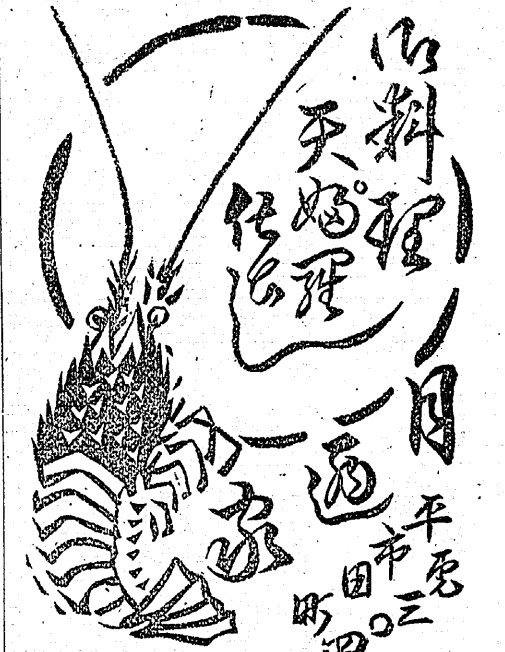 御料理
天婦羅
仕出し
月
家
平市田町
電三〇四